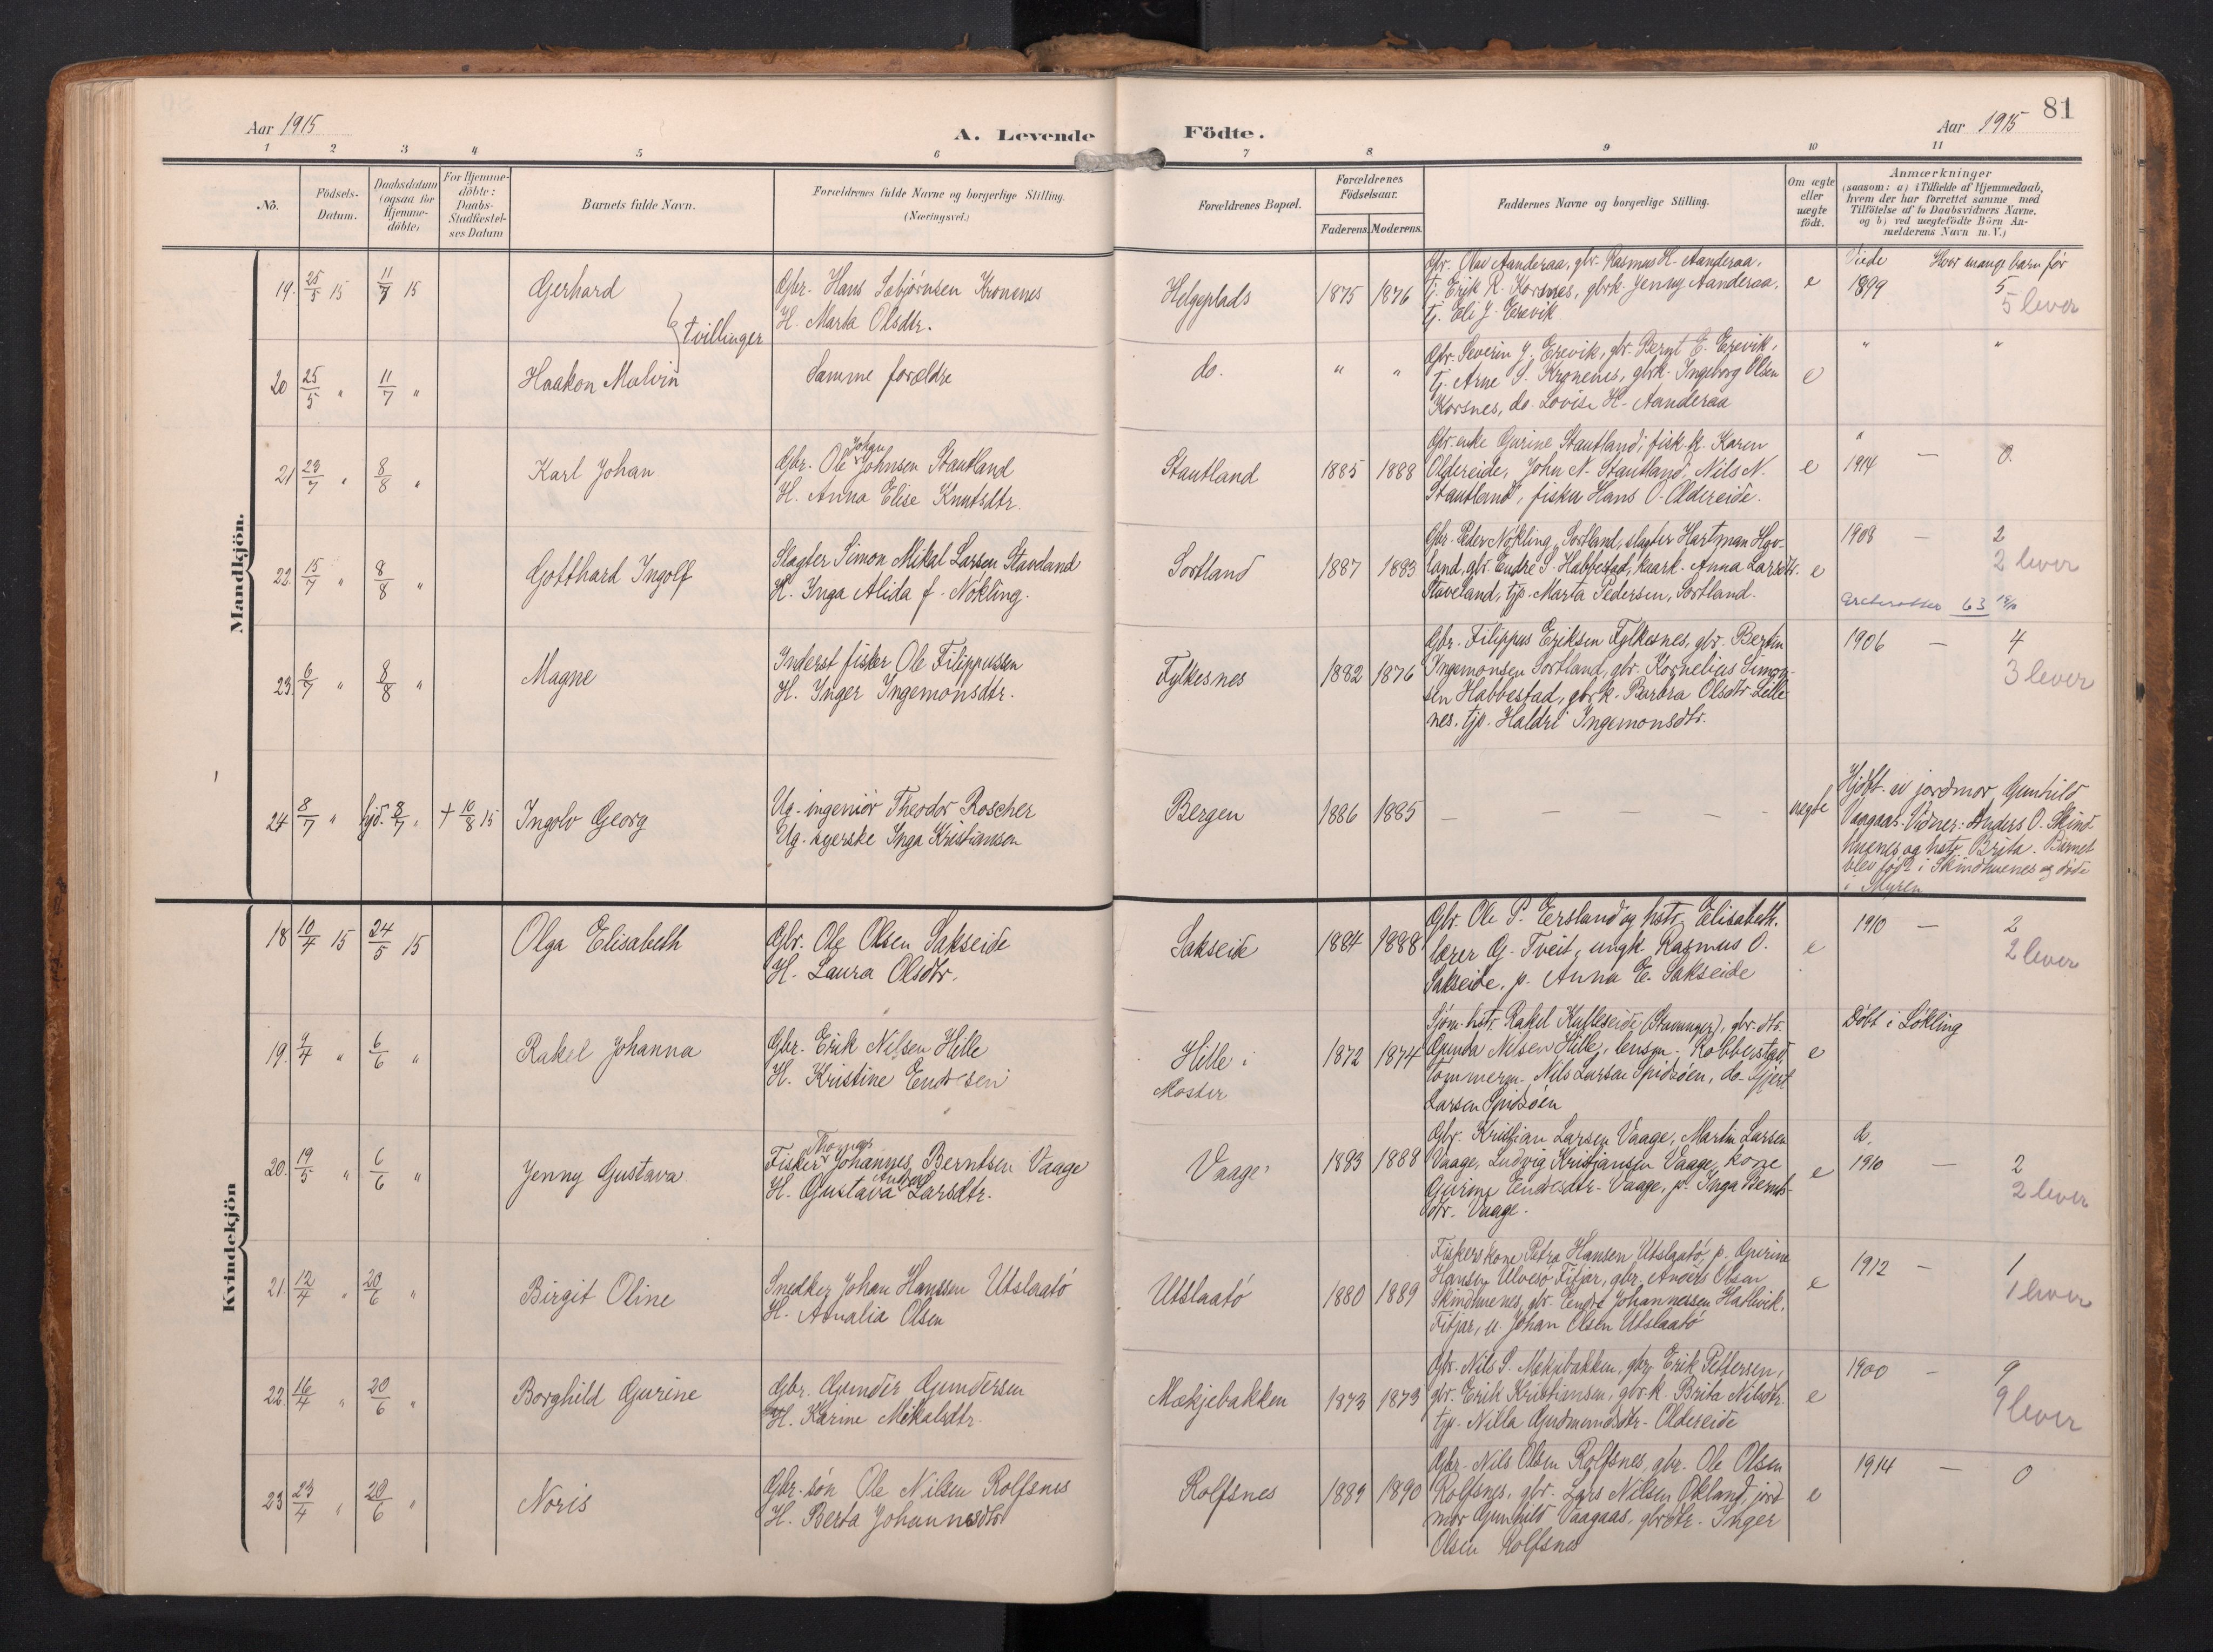 81
Aar 1915
A. Levende Födte.
Aar 1915
1 2 3 4 5 6 7 8 9 10 11
No.
Födsels-
Datum.
Daabsdatum
(ogsaa for
Hjemme-
döbte)
For Hjemme-
döbte:
Daabs-
Stadfæstel-
ses Datum
Barnets fulde Navn.
Forældrenes fulde Navne og borgerlige Stilling.
(Næringsvei.)
Forældrenes Bopæl.
Forældrenes
Födselsaar.
Faderens. Moderens.
Faddernes Navne og borgerlige Stilling.
Om ægte
eller
uægte
födt.
Anmærkninger
(saasom: a) i Tilfælde af Hjemmedaab,
hvem der har forrettet samme med
Tilföielse af to Daabsvidners Navne,
og b) ved uægtefödte Börn An-
melderens Navn m. V.)
Mandkjön.
19. 25/5 15 11/7 15
Gerhard
tvillinger
Gbr. Hans Sebjørnsen Kronenes
H. Marta Olsdtr.
Helgeplads
1875 1876
Gbr. Olav Aanderaa, gbr. Rasmus H. Aanderaa,
tj. Erik R. Korsnes, gbrk. Jenny Aanderaa,
tj. Eli J. Erevik
e
Viede Hvor mange barn før
1899 5
5 lever
20 25/5 " 11/7 "
Haakon Malvin
Samme forældre
do.
" "
Gbr. Severin J. Erevik, gbr. Bernt E. Erevik,
tj. Arne S. Kronenes, gbrk. Ingeborg Olsen
Korsnes, do. Lovise H. Aanderaa
e
" "
21 23/7 " 8/8 "
Karl Johan
Johan
Gbr. Ole Johnsen Stautland
H. Anna Elise Knutsdtr.
Stautland
1885 1888
Gbr. enke Gurine Stautland, fisk. k. Karen
Oldereide, John N. Stautland, Nils N.
Stautland, fisker Hans O. Oldereide.
e
"
1914 — 0.
22. 15/7 " 8/8 "
Gotthard Ingolf
Slagter Simon Mikal Larsen Staveland
H. Inga Alida f. Nökling.
Sortland
1887 1883
Gbr. Peder Nökling, Sortland, slagter Hartman Hov-
land, gbr. Endre S. Habbestad, kaark. Anna Larsdtr.
Staveland, tjp. Marta Pedersen, Sortland.
e
1908 — 2
2 lever
63
23. 6/7 " 8/8 "
Magne
Inderst fisker Ole Filippussen
H. Inger Ingemonsdtr.
Fylkesnes
1882 1876
Gbr. Filippus Eriksen Fylkesnes, gbr. Bertin
Ingemonsen Sortland, gbr. Kornelius Simon-
sen Habbestad, gbrk. Barbra Olsdtr. Lille-
nes, tjp. Haldri Ingemonsdtr.
1906 — 4
3 lever
24 8/7 " hjd. 8/7 " + 10/8 15
Ingolv Georg
Ug. ingeniör Theodor Roscher
Ug. syerske Inga Kristiansen
Bergen
1886 1885
— — — — —
uægte
Hjdöbt. av jordmor Gunhild
Vaagaas. Vidner: Anders O. Skind-
huenes og hstr. Brita. Barnet
blev født i Skindhuenes og döde
i Myren
Kvindekjön
18 10/4 15 24/5 15
Olga Elisabeth
Gbr. Ole Olsen Sakseide
H. Laura Olsdtr.
Sakseide
1884 1888
Gbr. Ole P. Eersland og hstr. Elisabeth,
lærer G. Tveit, ungk. Rasmus O.
Sakseide, p. Anna E. Sakseide
e
1910 — 2
2 lever
19. 9/4 " 6/6 "
Rakel Johanna
Gbr. Erik Nilsen Hille
H. Kristine Endresen
Hille i
Moster
1872 1874
Sjöm. hstr. Rakel Kulleseide (Stavanger), gbr. dtr.
Gunda Nilsen Hille, lensm. Robberstad,
tömmerm. Nils Larsen Spidsöen, do. Gjert
Larsen Spidsöen
e
Döbt i Lökling
20. 19/5 " 6/6 "
Jenny Gustava
Thomas
Fisker Johannes Berntsen Vaage
H. Gustava Larsdtr.
Vaage
1883 1888
Gbr. Kristian Larsen Vaage, Martin Larsen
Vaage, Ludvig Kristjansen Vaage, kone
Gurine Endresdtr. Vaage, p. Inga Bernts-
dtr. Vaage.
e
1910 — 2
2 lever
21. 12/4 " 20/6 "
Birgit Oline
Snedker Johan Hanssen Utslaatö
H. Amalia Olsen
Utslaatö
1880 1889
Fiskers kone Petra Hansen Utslaatö, p. Gurine
Hansen Ulvesö Fitjar, gbr. Anders Olsen
Skindhuenes, gbr. Endre Johannessen Hatlevik,
Fitjar, u. Johan Olsen Utslaatö
e
1912 — 1
1 lever
22. 16/4 " 20/6 "
Borghild Gurine
Gbr. Gunder Gundersen
H. Karine Mikalsdtr.
Mækjebakken
1873 1873
Gbr. Nils S. Mekjebakken, gbr. Erik Pettersen,
gbr. Erik Kristiansen, gbr.k. Brita Nilsdtr.
tjp. Nilla Gudmundsdtr. Oldereide
e
1900 — 9
9 lever
23 23/4 " 20/6 "
Noris
Gbr. sön Ole Nilsen Rolfsnes
H. Berta Johannesdtr
Rolfsnes
1889 1890
Gbr. Nils Olsen Rolfsnes, gbr. Ole Olsen
Rolfsnes, gbr. Lars Nilsen Økland, jord-
mor Gunhild Vaagaas, gbrdtr. Inger
Olsen Rolfsnes
e
1914 — 0